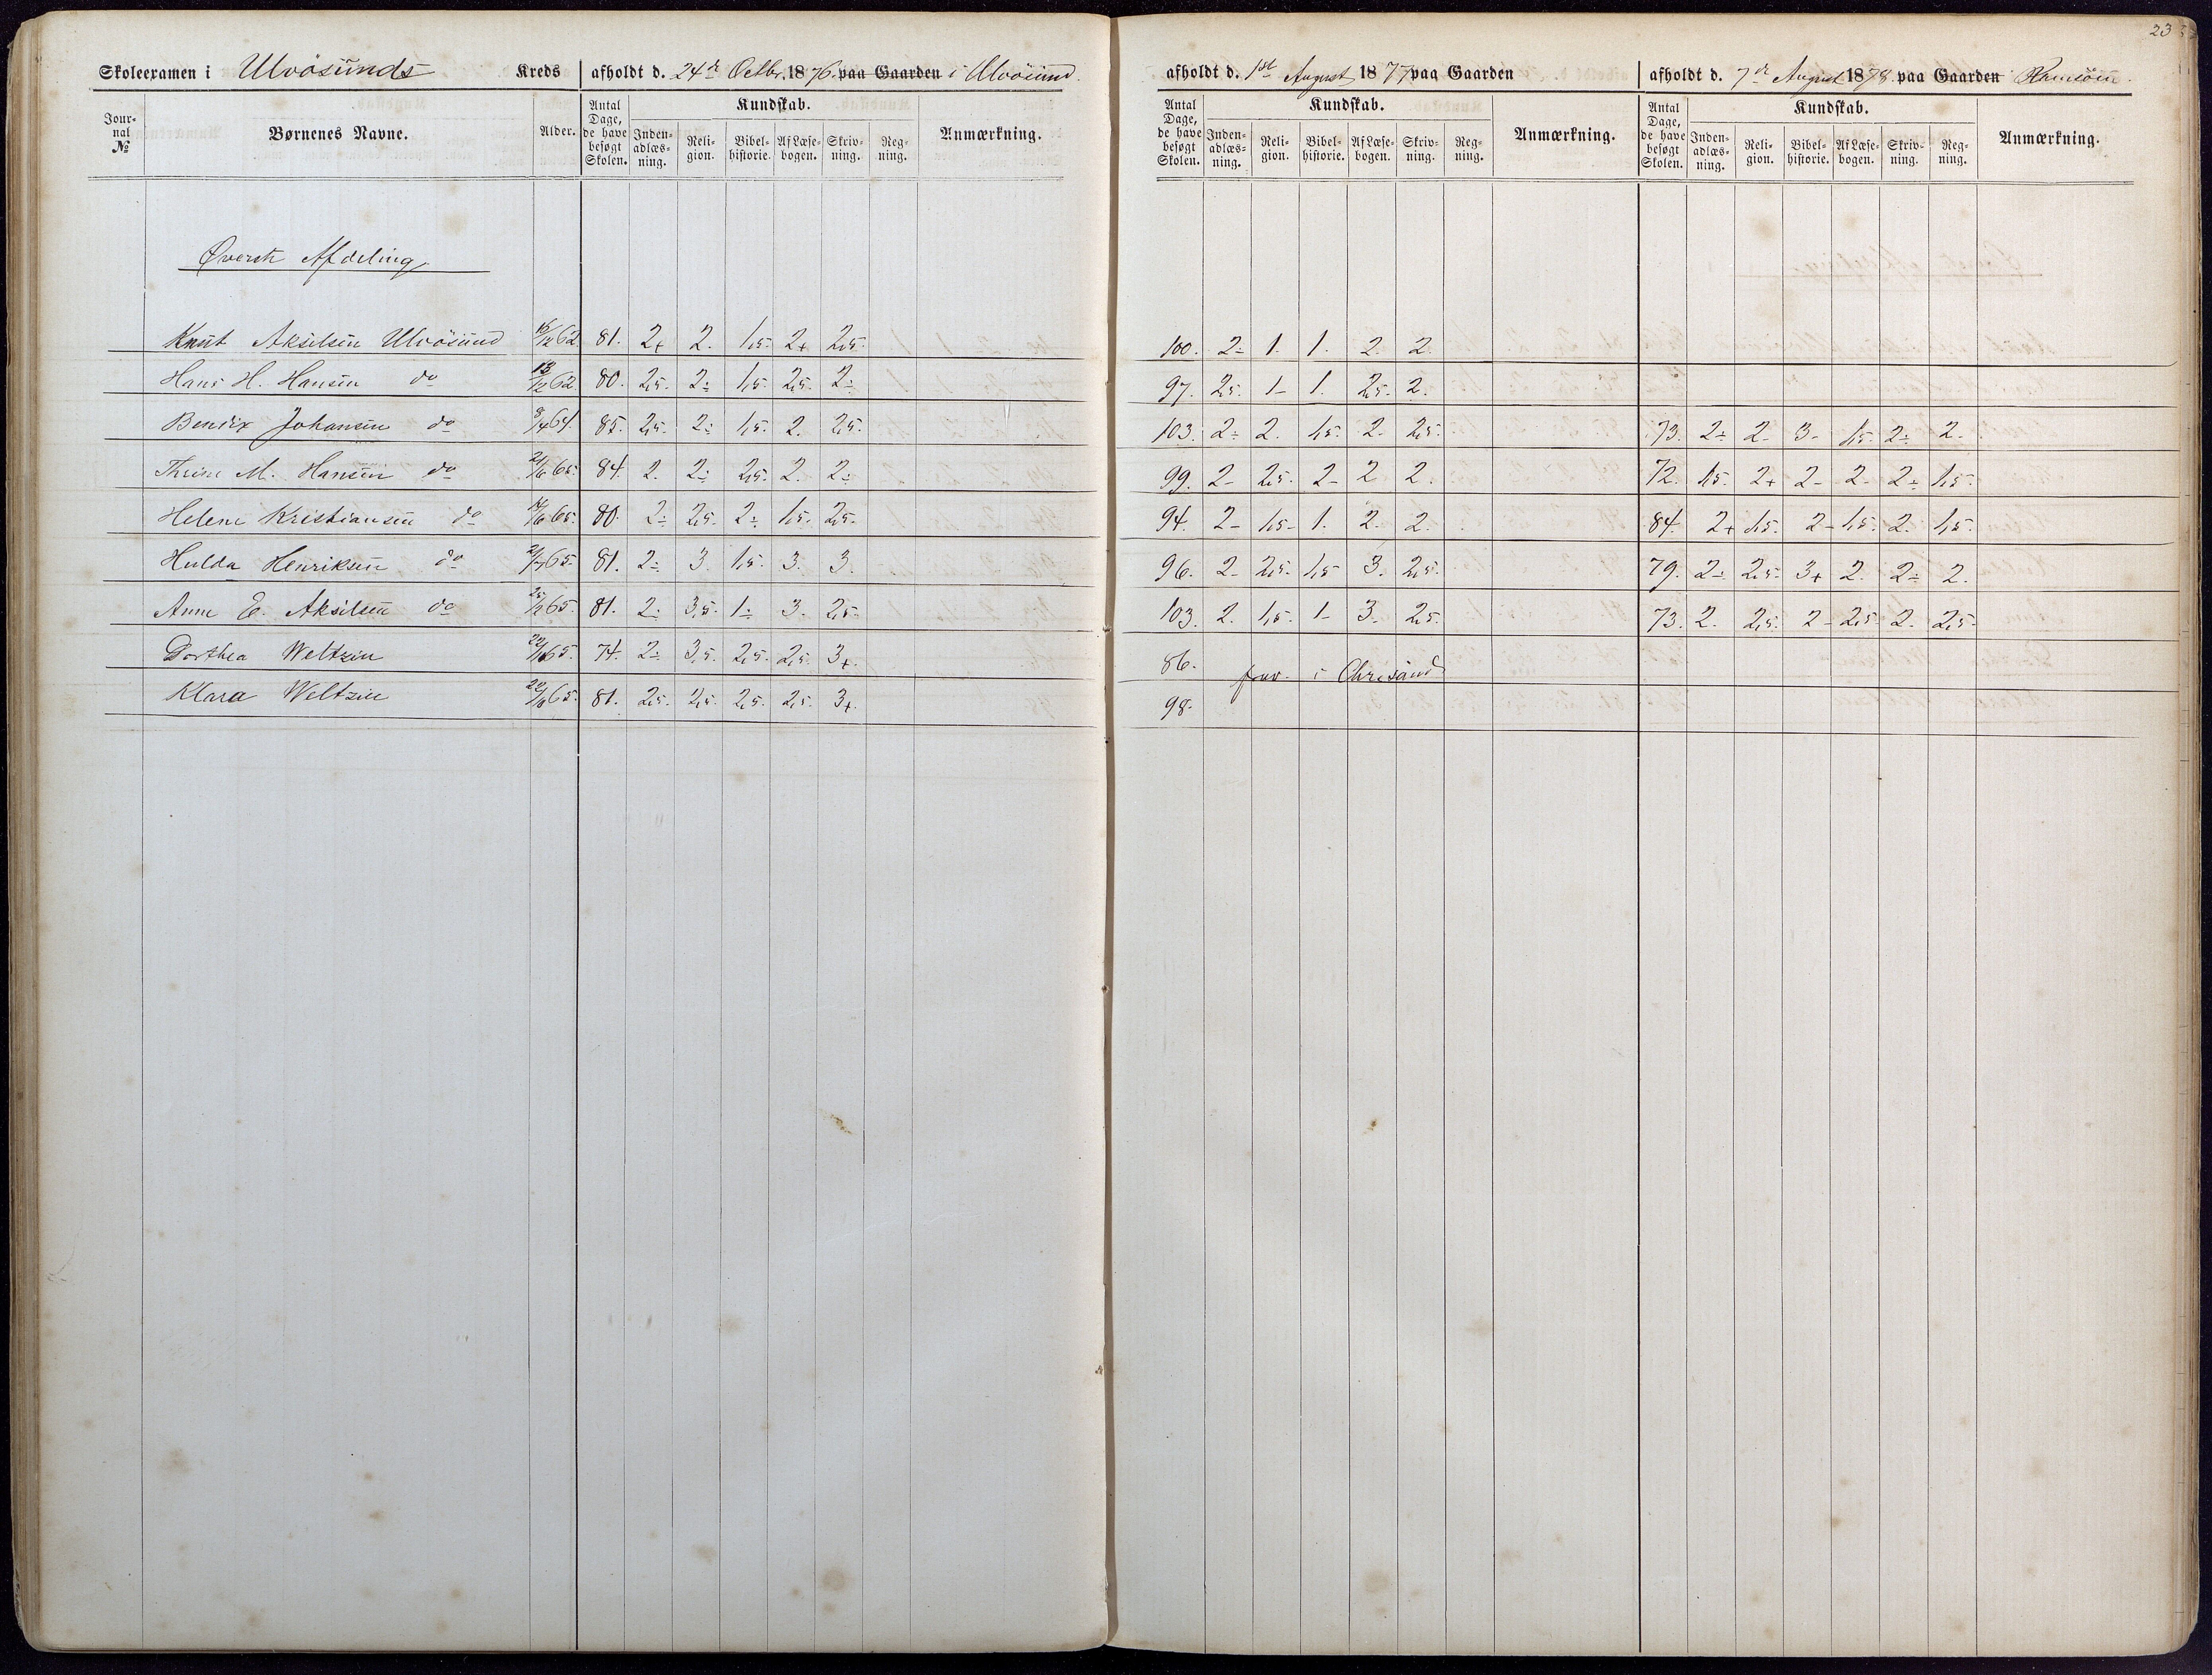 23
Skoleexamen i Ulvösunds Kreds afholdt d. 24de Octbr. 1876 paa Gaarden i Ulvösund.
afholdt d. 1ste August 1877 paa Gaarden
afholdt d. 7de August 1878 paa Gaarden Ramsöen
Jour-nal № Børnenes Navne. Alder. Antal Dage, de have besøgt Skolen. Kundskab. Inden-adlæs-ning. Reli-gion. Bibel-historie. Af Læse-bogen. Skriv-ning. Reg-ning. Anmærkning.
Antal Dage, de have besøgt Skolen. Kundskab. Inden-adlæs-ning. Reli-gion. Bibel-historie. Af Læse-bogen. Skriv-ning. Reg-ning. Anmærkning.
Antal Dage, de have besøgt Skolen. Kundskab. Inden-adlæs-ning. Reli-gion. Bibel-historie. Af Læse-bogen. Skriv-ning. Reg-ning. Anmærkning.
Øverste Afdeling
Knut Akselsen Ulvösund 62. 81. 2+ 2. 1,5. 2+ 2,5. 100. 2÷ 1. 1. 2. 2.
Hans H. Hansen do 13/12 62. 80. 2,5. 2÷ 1,5. 2,5. 2÷ 97. 2,5. 1- 1. 2,5. 2.
Bendix Johansen do 8/4 64. 85. 2,5. 2÷ 1,5. 2. 2,5. 103. 2÷ 2. 1,5. 2. 2,5. 73. 2÷ 2- 3- 1,5. 2÷ 2.
Thrine M. Hansen do 21/6 65. 84. 2. 2÷ 2,5. 2. 2÷ 99. 2- 2,5. 2- 2 2. 72. 1,5. 2+ 2- 2- 2÷ 1,5.
Helene Kristiansen do 65. 80. 2÷ 2,5. 2÷ 1,5. 2,5. 94. 2- 1,5- 1. 2. 2. 84. 2+ 1,5. 2- 1,5. 2. 1,5.
Hulda Henriksen do 2/7 65. 81. 2÷ 3. 1,5. 3. 3. 96. 2- 2,5. 1,5 3. 2,5. 79. 2÷ 2,5. 3+ 2. 2÷ 2.
Anne E. Akselsen do 65. 81. 2÷ 3,5. 1÷ 3. 2,5. 103. 2. 1,5. 1- 3. 2,5. 73. 2. 2,5. 2- 2,5. 2. 2,5.
Dorthea Weltzin 65. 74. 2÷ 3,5. 2,5. 2,5. 3+. 86. frav. i Chrisand
Klara Weltzin 65. 81. 2,5. 2,5. 2,5. 2,5. 3+. 98.